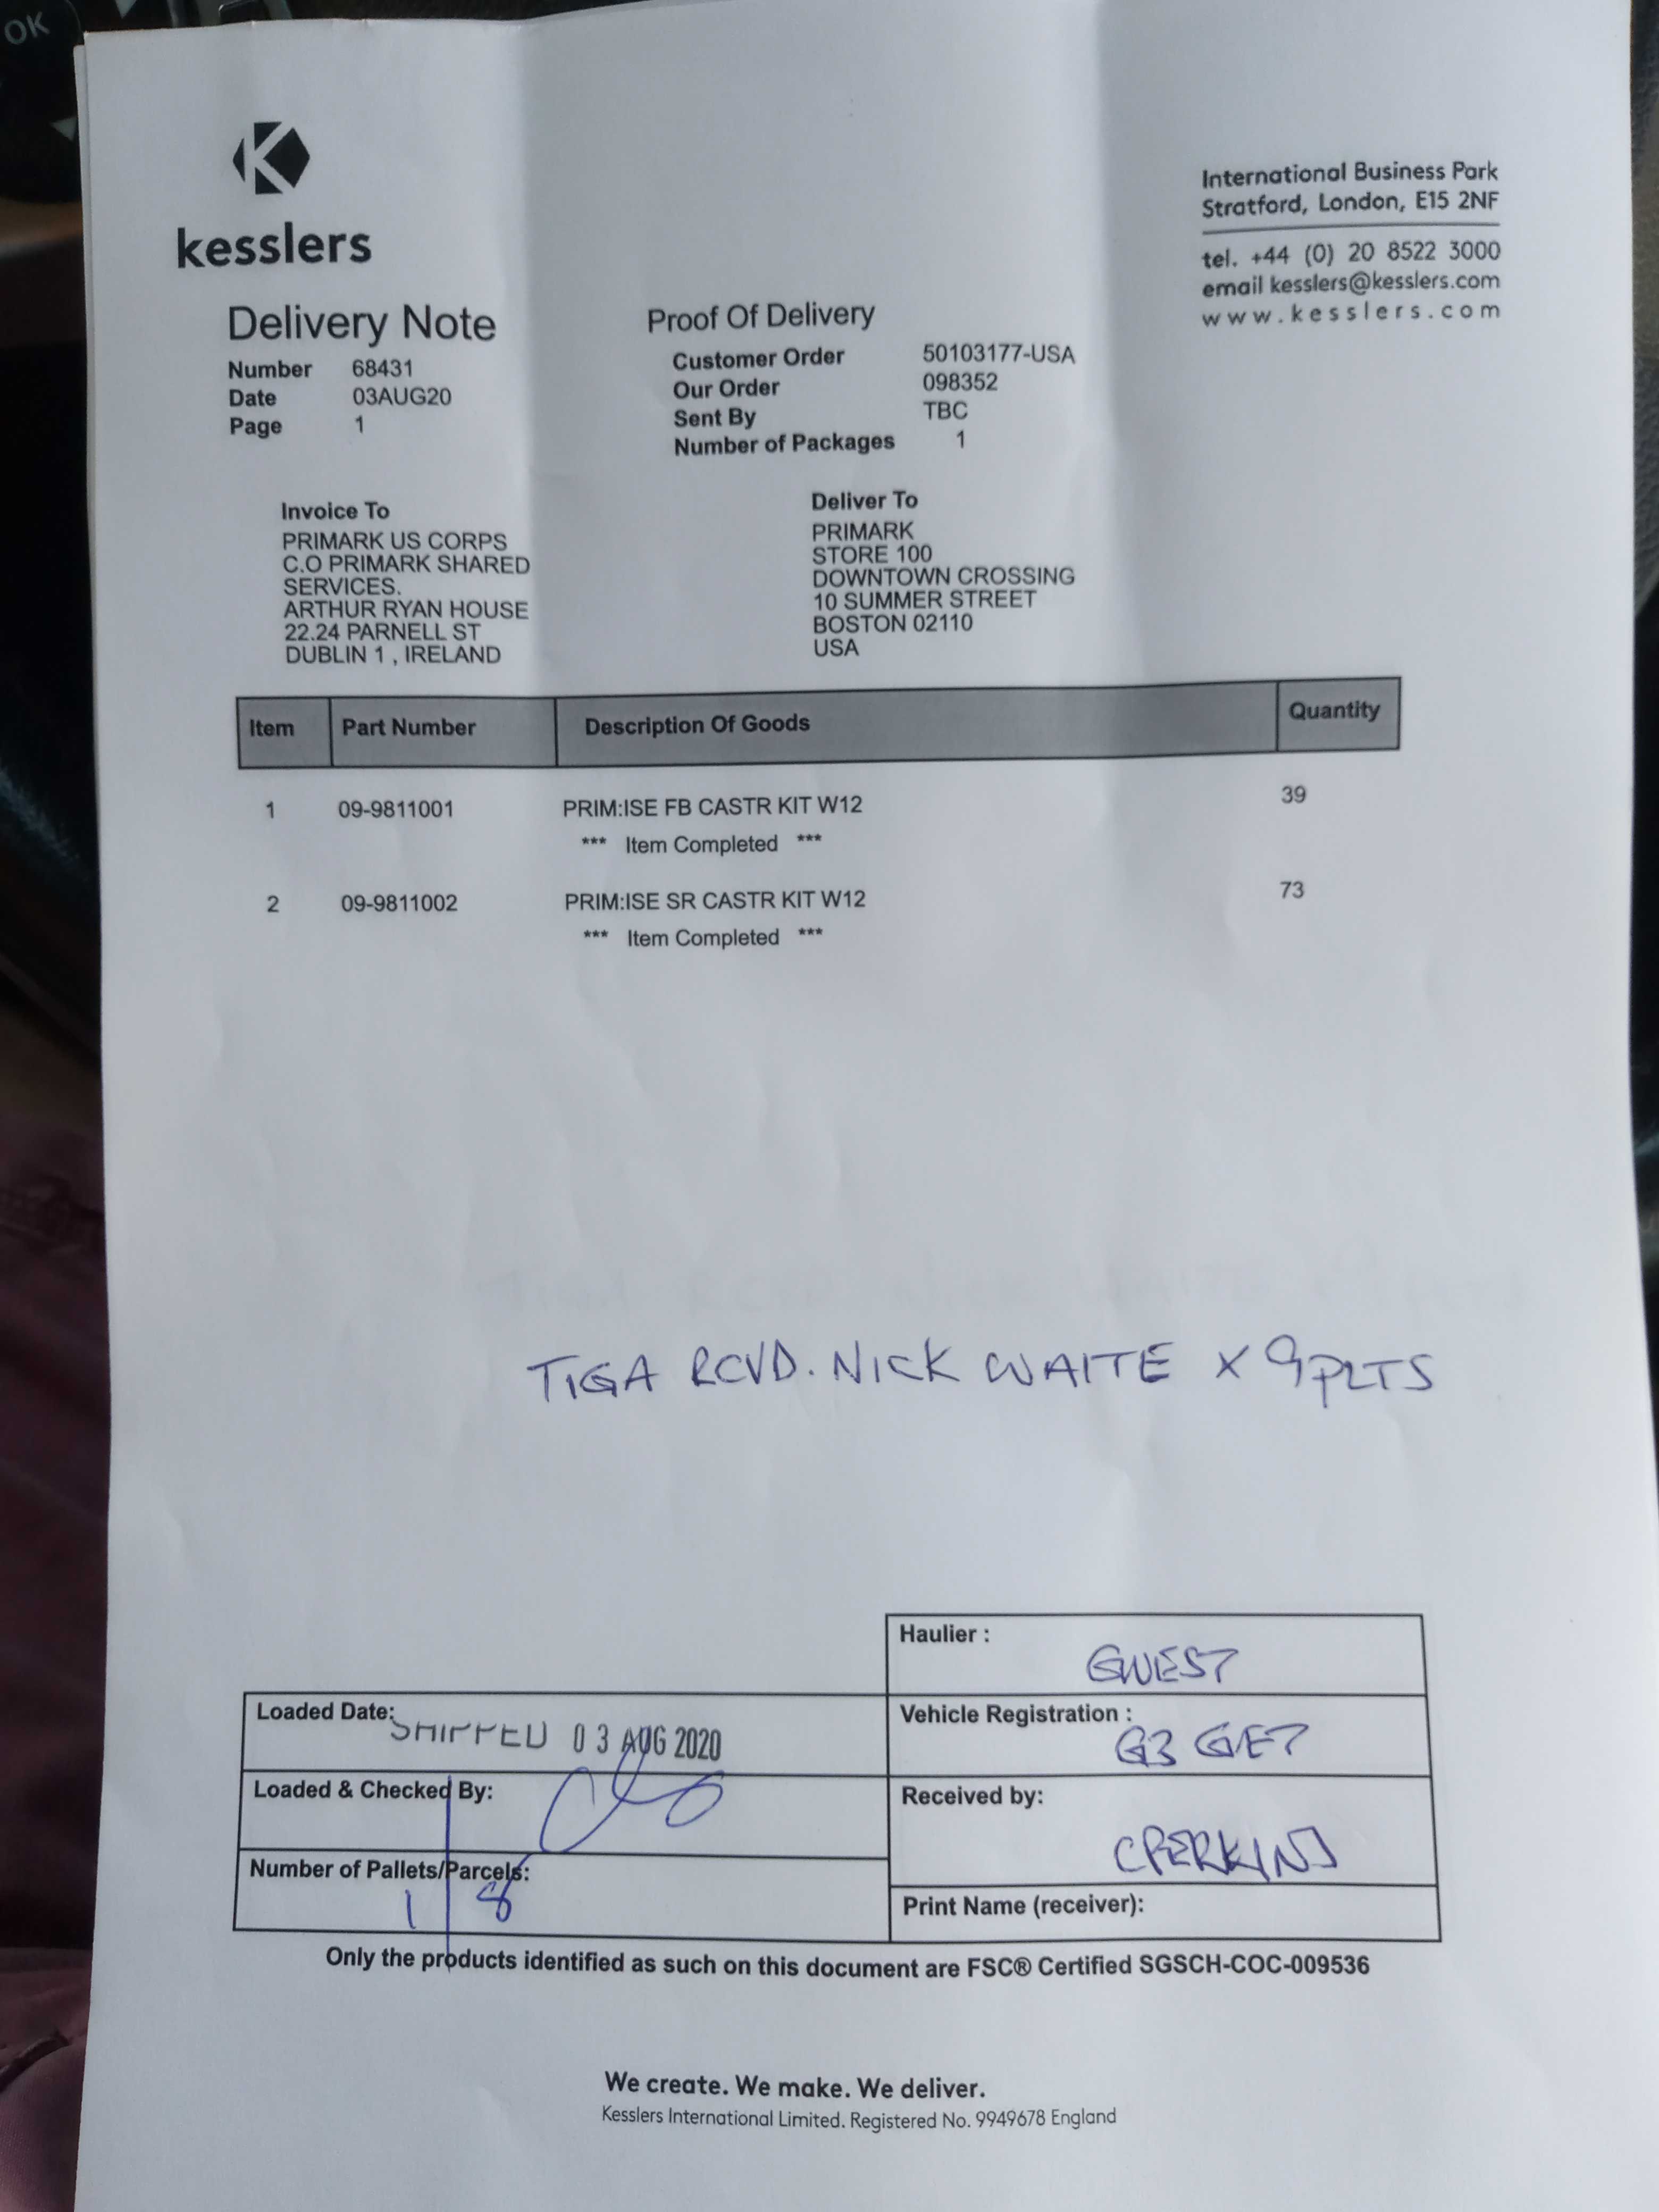 OK
kesslers
International Business Park
Stratford, London, E15 2NF
tel. +44 (0) 20 8522 3000
email kesslers@kesslers.com
www.kesslers.com
Delivery Note
Number 68431
Date 03AUG20
Page 1
Proof Of Delivery
Customer Order 50103177-USA
Our Order 098352
Sent By TBC
Number of Packages 1
Invoice To
PRIMARK US CORPS
C.O PRIMARK SHARED
SERVICES.
ARTHUR RYAN HOUSE
22.24 PARNELL ST
DUBLIN 1 , IRELAND
Deliver To
PRIMARK
STORE 100
DOWNTOWN CROSSING
10 SUMMER STREET
BOSTON 02110
USA
Item Part Number Description Of Goods Quantity
1 09-9811001 PRIM:ISE FB CASTR KIT W12 39
*** Item Completed ***
2 09-9811002 PRIM:ISE SR CASTR KIT W12 73
*** Item Completed ***
TIGA RCVD. NICK WAITE X 9 PLTS
Haulier : GWEST
Loaded Date: SHIPPED 03 AUG 2020
Vehicle Registration : G3 GET
Loaded & Checked By:
Received by: CPERKINS
Number of Pallets/Parcels: 1 8
Print Name (receiver):
Only the products identified as such on this document are FSC® Certified SGSCH-COC-009536
We create. We make. We deliver.
Kesslers International Limited. Registered No. 9949678 England